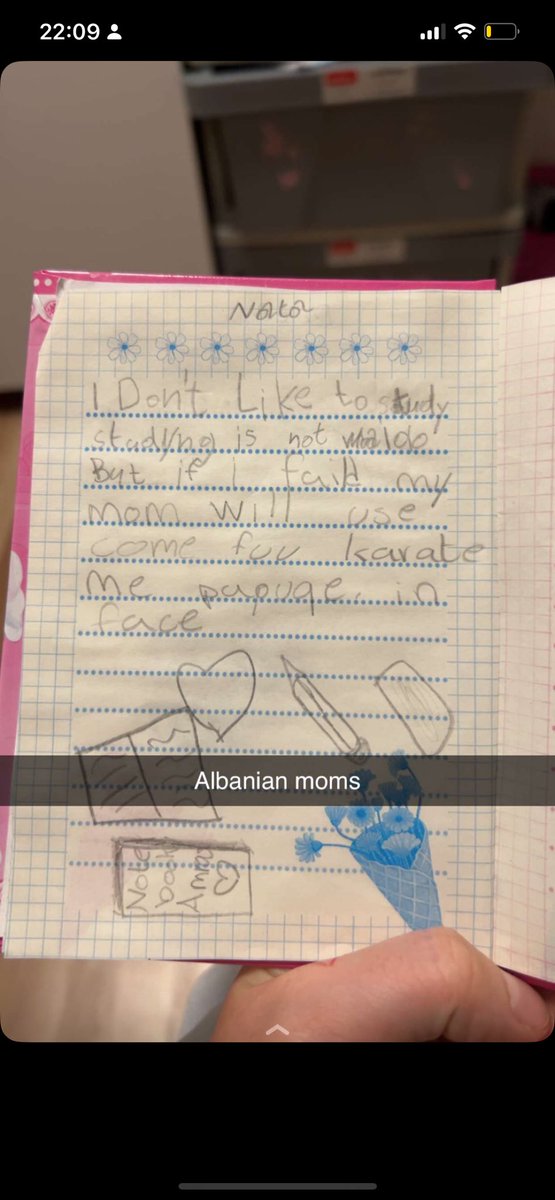 22:09
Nota
I Don't Like to study
studying is not maldo
But if i faild my
mom will use
come fuu karate
me papuqe. in
face
Albanian moms
Note
book
Amra